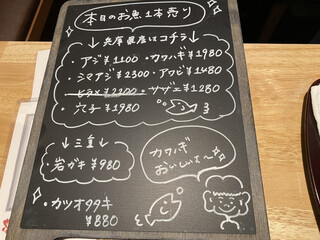 本日のお魚1本売り
↓兵庫県産はコチラ↓
・アジ¥1100 ・カワハギ¥1980
・シマアジ¥2300 ・アワビ¥1480
・ヒラメ¥2200 ・サザエ¥1280
・穴子¥1980
↓三重↓
・岩ガキ¥980
・カツオタタキ
¥880
カワハギ
おいしいよ〜